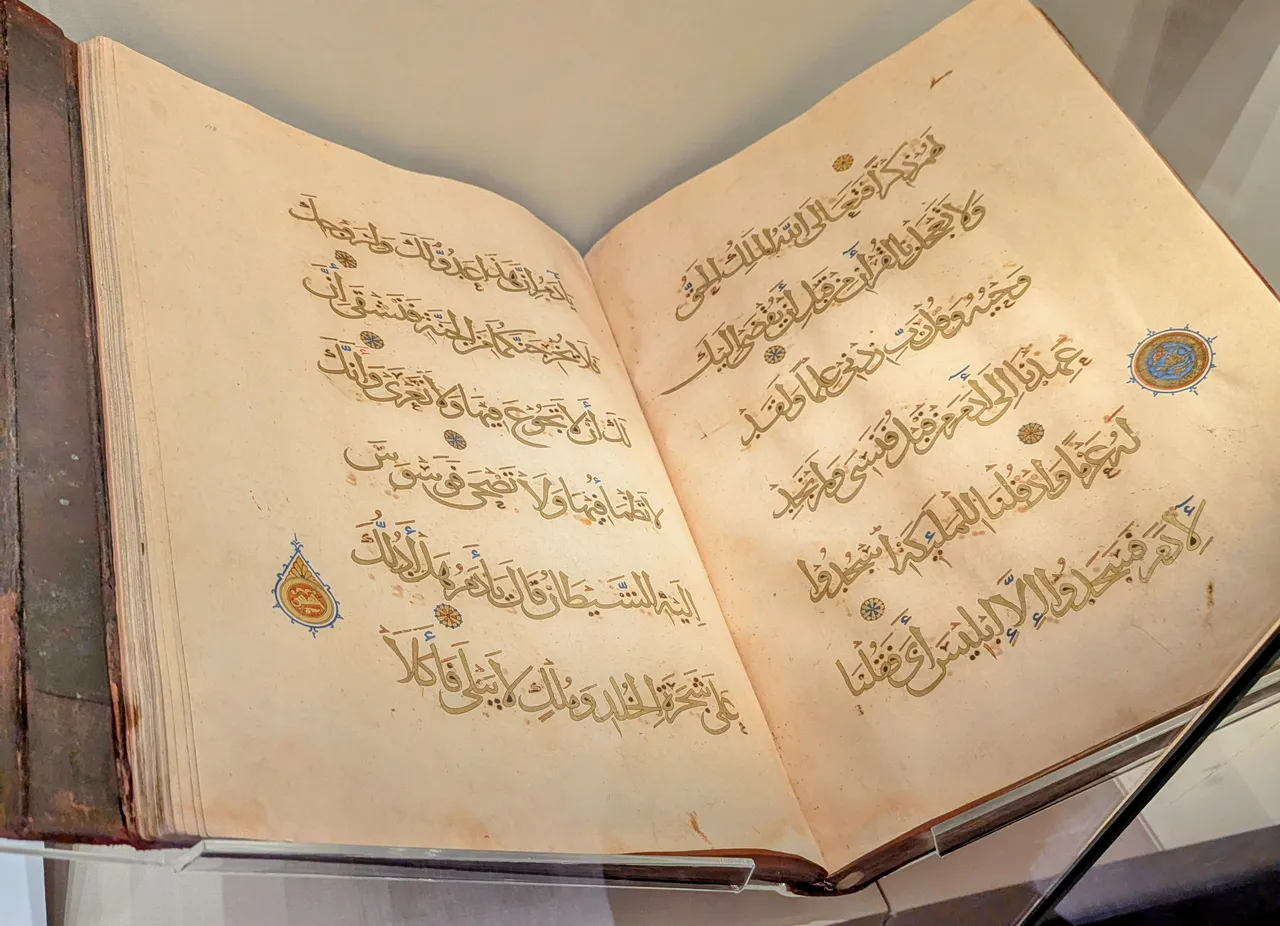 لهم ذكرا فتعالى الله الملك الحق
ولا تعجل بالقرآن من قبل أن يقضى إليك
وحيه وقل رب زدني علما ولقد
عهدنا إلى آدم من قبل فنسي ولم نجد
له عزما وإذ قلنا للملئكة اسجدوا
لآدم فسجدوا إلا إبليس أبى فقلنا
يآدم إن هذا عدو لك ولزوجك
فلا يخرجنكما من الجنة فتشقى إن
لك أن لا تجوع فيها ولا تعرى وأنك
لا تظمأ فيها ولا تضحى فوسوس
إليه الشيطان قال يآدم هل أدلك
على شجرة الخلد وملك لا يبلى فأكلا